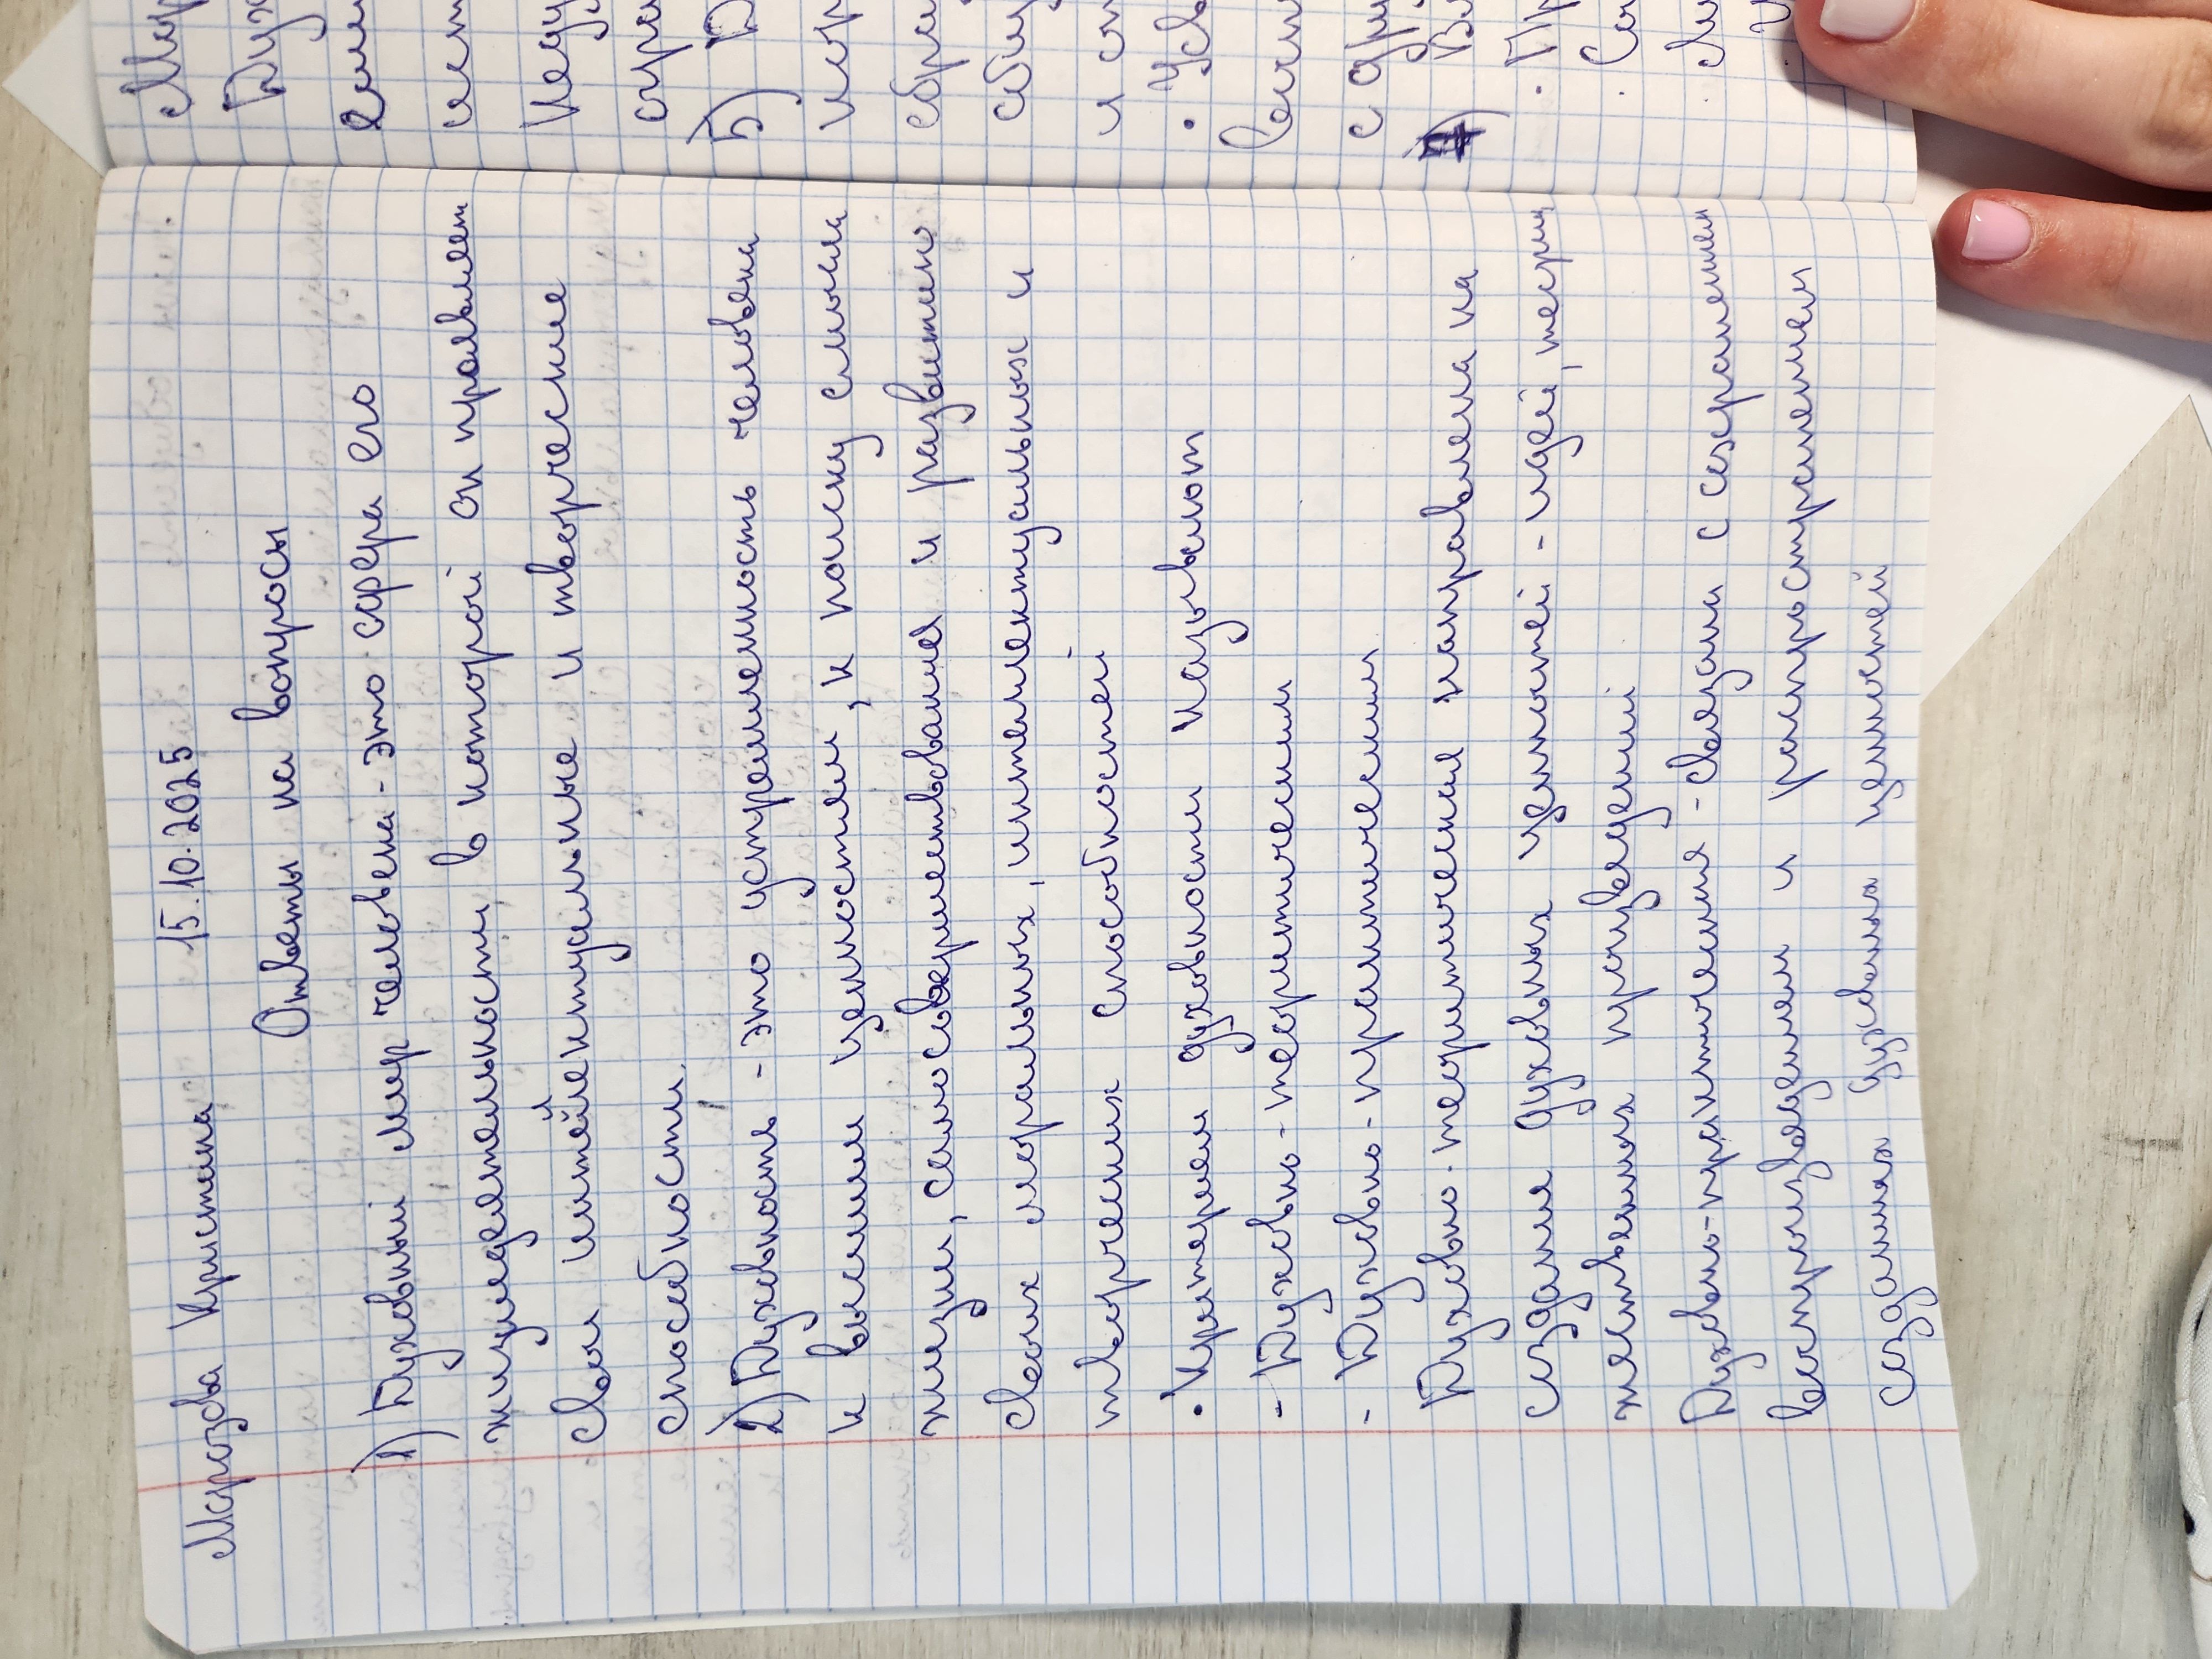 Морозова Кристина 15.10.2025
Ответы на вопросы
1) Духовный мир человека - это сфера его
жизнедеятельности, в которой он проявляет
свои интеллектуальные и творческие
способности.
2) Духовность - это устремленность человека
к высшим ценностям, к поиску смысла
жизни, самосовершенствования и развитию
своих моральных, интеллектуальных и
творческих способностей
• Критерии духовности называют
- Духовно-теоретический
- Духовно-практический
Духовно-теоретическая направлена на
создание духовных ценностей - идей, теории,
произведений
Духовно-практические - связаны с сохранением
воспроизведением и распространением
созданных духовных ценностей
Мор
Дух
5) Д
• Усл
7)